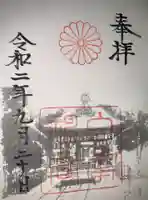 奉拝
令和二年九月二十日